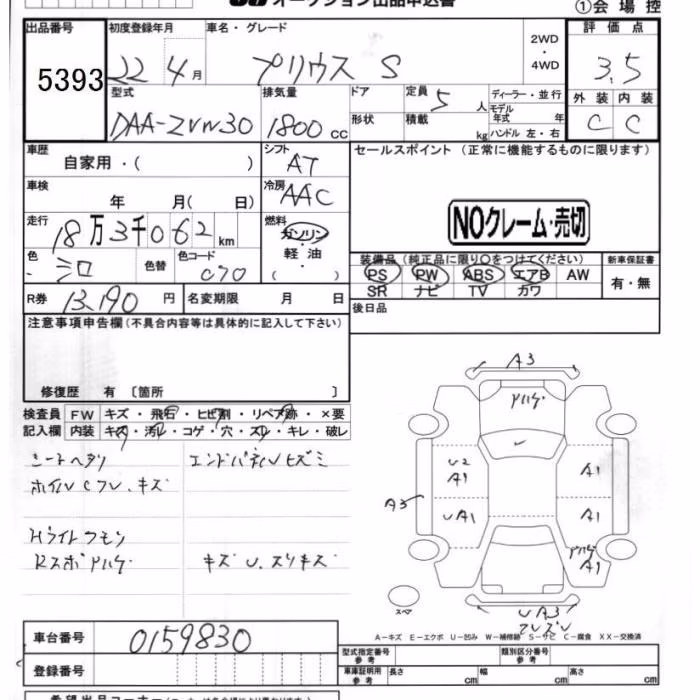 オークション出品申込書
①会場控
出品番号
5393
初度登録年月
22 4月
車名・グレード
プリウス S
2WD
・
4WD
評価点
3.5
型式
DAA-ZVW30
排気量
1800 cc
ドア
形状
定員
5 人
積載
kg
ディーラー・並行
モデル
年式 年
ハンドル 左・右
外装 内装
C C
車歴
自家用・( )
シフト
AT
セールスポイント (正常に機能するものに限ります)
車検
年 月( 日)
冷房
AAC
NOクレーム・売切
走行
18万3千062km
燃料
ガソリン
軽油
( )
色
シロ
色替
色コード
070
装備品(純正品に限り○をつけてください)
PS PW ABS エアB AW
SR ナビ TV カワ
新車保証書
有・無
R券 13,190 円
名変期限 月 日
後日品
注意事項申告欄(不具合内容等は具体的に記入して下さい)
修復歴 有 〔箇所 〕
検査員
記入欄
FW キズ・飛石・ヒビ割・リペア跡・×要
内装 キズ・汚レ・コゲ・穴・スレ・キレ・破レ
シートヘタリ
エンドパネルヒズミ
ホイルCフル、キズ
Hライトクモリ
Rスポハゲ
キズ U.スリキズ
A3
ハゲ
U2
A1
A1
A3
UA1
A1
ハゲ
A1
スペア
UA3
A-キズ E-エクボ U-凹み W-補修跡 S-サビ C-腐食 XX-交換済
車台番号
0159830
登録番号
型式指定番号
参考
類別区分番号
参考
車庫証明用
参考
長さ cm
幅 cm
高さ cm